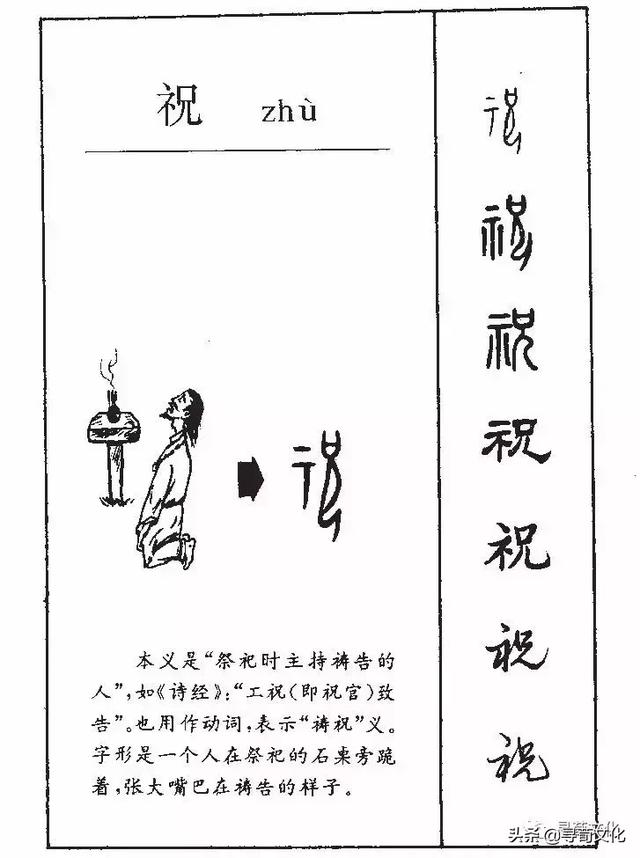 祝 zhù
本义是“祭祀时主持祷告的
人”,如《诗经》:“工祝(即祝官)致
告”。也用作动词,表示“祷祝”义。
字形是一个人在祭祀的石桌旁跪
着,张大嘴巴在祷告的样子。
祝
祝
祝
祝
祝
祝
祝
头条@寻荀文化